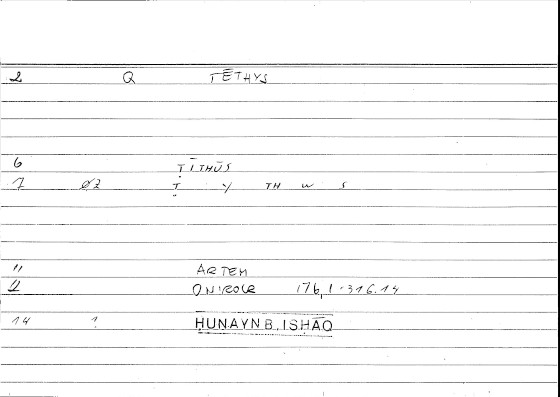 2 Q TĒTHYS
6 ṬĪTHŪS
7 02 Ṭ Y TH W S
11 ARTEM
12 ONIROCR 176,1 - 316.14
14 1 ḤUNAYN B. ISḤĀQ